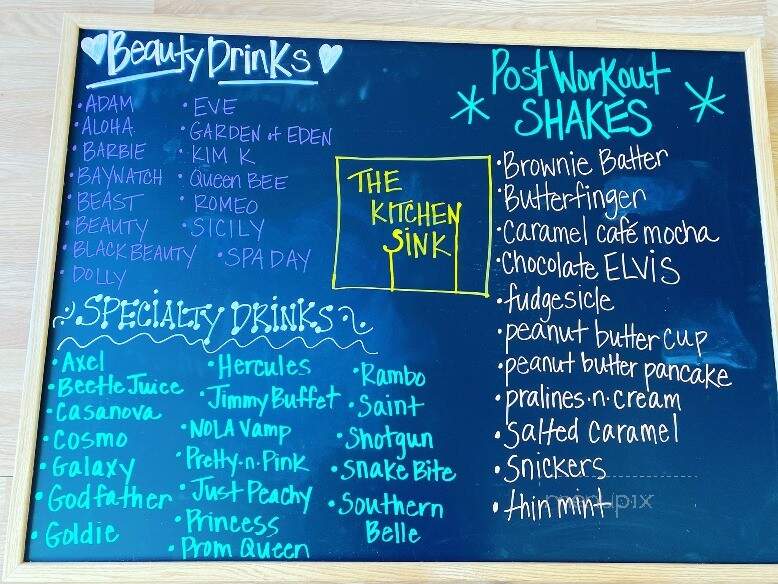 Beauty Drinks
• ADAM
• ALOHA
• BARBIE
• BAYWATCH
• BEAST
• BEAUTY
• BLACK BEAUTY
• DOLLY
• EVE
• GARDEN of EDEN
• KIM K
• Queen BEE
• ROMEO
• SICILY
• SPA DAY
THE
KITCHEN
SINK
SPECIALTY DRINKS
• Axel
• Beetle Juice
• Casanova
• Cosmo
• Galaxy
• Godfather
• Goldie
• Hercules
• Jimmy Buffet
• NOLA Vamp
• Pretty-n-Pink
• Just Peachy
• Princess
• Prom Queen
• Rambo
• Saint
• Shotgun
• Snake Bite
• Southern
Belle
Post Workout
* SHAKES *
• Brownie Batter
• Butterfinger
• Caramel café mocha
• Chocolate ELVIS
• fudgesicle
• peanut butter cup
• peanut butter pancake
• pralines-n-cream
• Salted Caramel
• Snickers
• thin mint
menupix